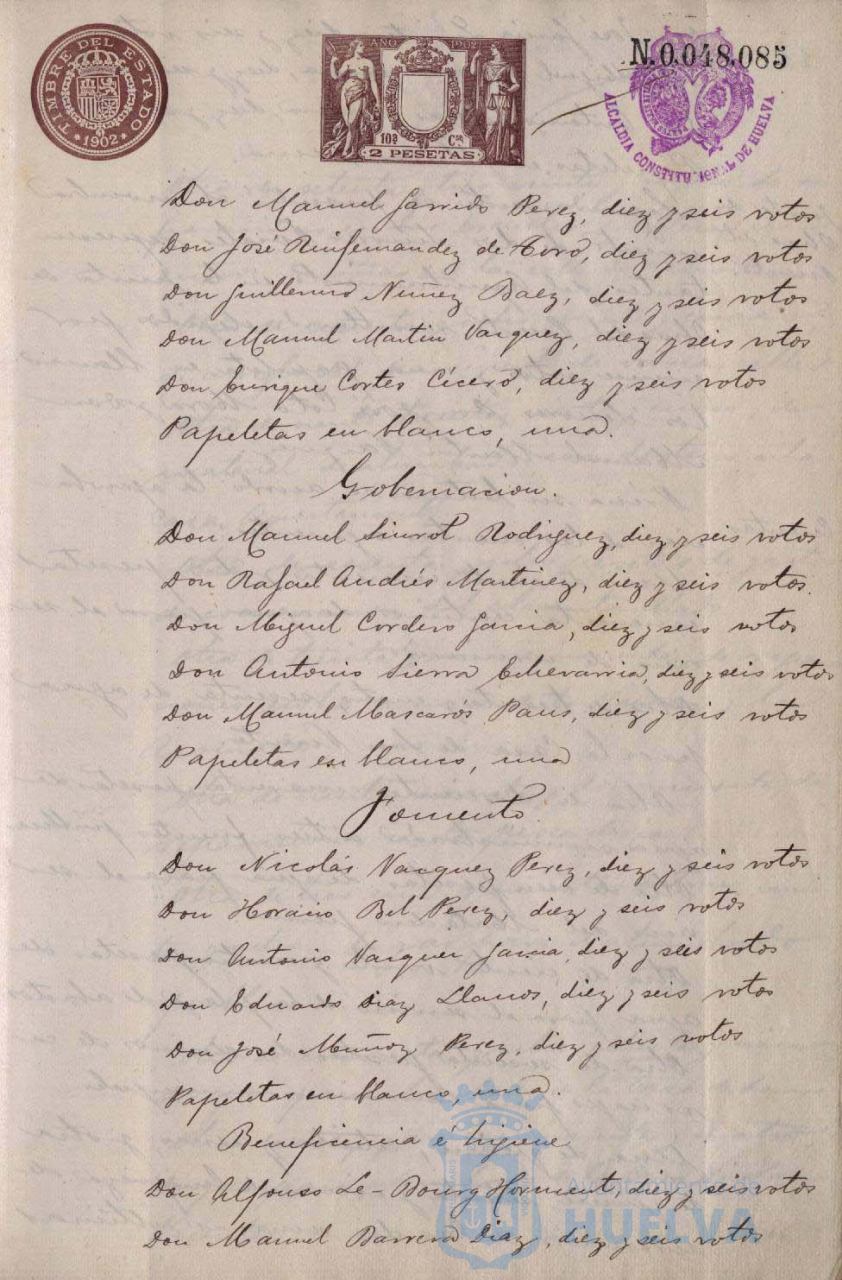 TIMBRE DEL ESTADO
*1902*
AÑO 1902
10ª Cse
2 PESETAS
N.0.048.085
ALCALDIA CONSTITUCIONAL DE HUELVA
Don Manuel Garrido Perez, diez y seis votos
Don José Ruifernandez de Toro, diez y seis votos
Don Guillermo Nuñez Baez, diez y seis votos
Don Manuel Martin Vazquez, diez y seis votos
Don Enrique Cortes Cícero, diez y seis votos
Papeletas en blanco, una.
Gobernacion.
Don Manuel Siurot Rodriguez, diez y seis votos
Don Rafael Andrés Martinez, diez y seis votos.
Don Miguel Cordero Garcia, diez y seis votos
Don Antonio Sierra Echevarria, diez y seis votos
Don Manuel Mascarós Paus, diez y seis votos
Papeletas en blanco, una
Fomento.
Don Nicolás Vazquez Perez, diez y seis votos
Don Horacio Bel Perez, diez y seis votos
Don Antonio Vazquez Garcia, diez y seis votos
Don Eduardo Diaz Llanos, diez y seis votos
Don José Muñoz Perez, diez y seis votos
Papeletas en blanco, una.
Beneficencia é higiene
Don Alfonso Le-Bourg Horment, diez y seis votos
Don Manuel Barrera Diaz, diez y seis votos
Ayuntamiento de
HUELVA